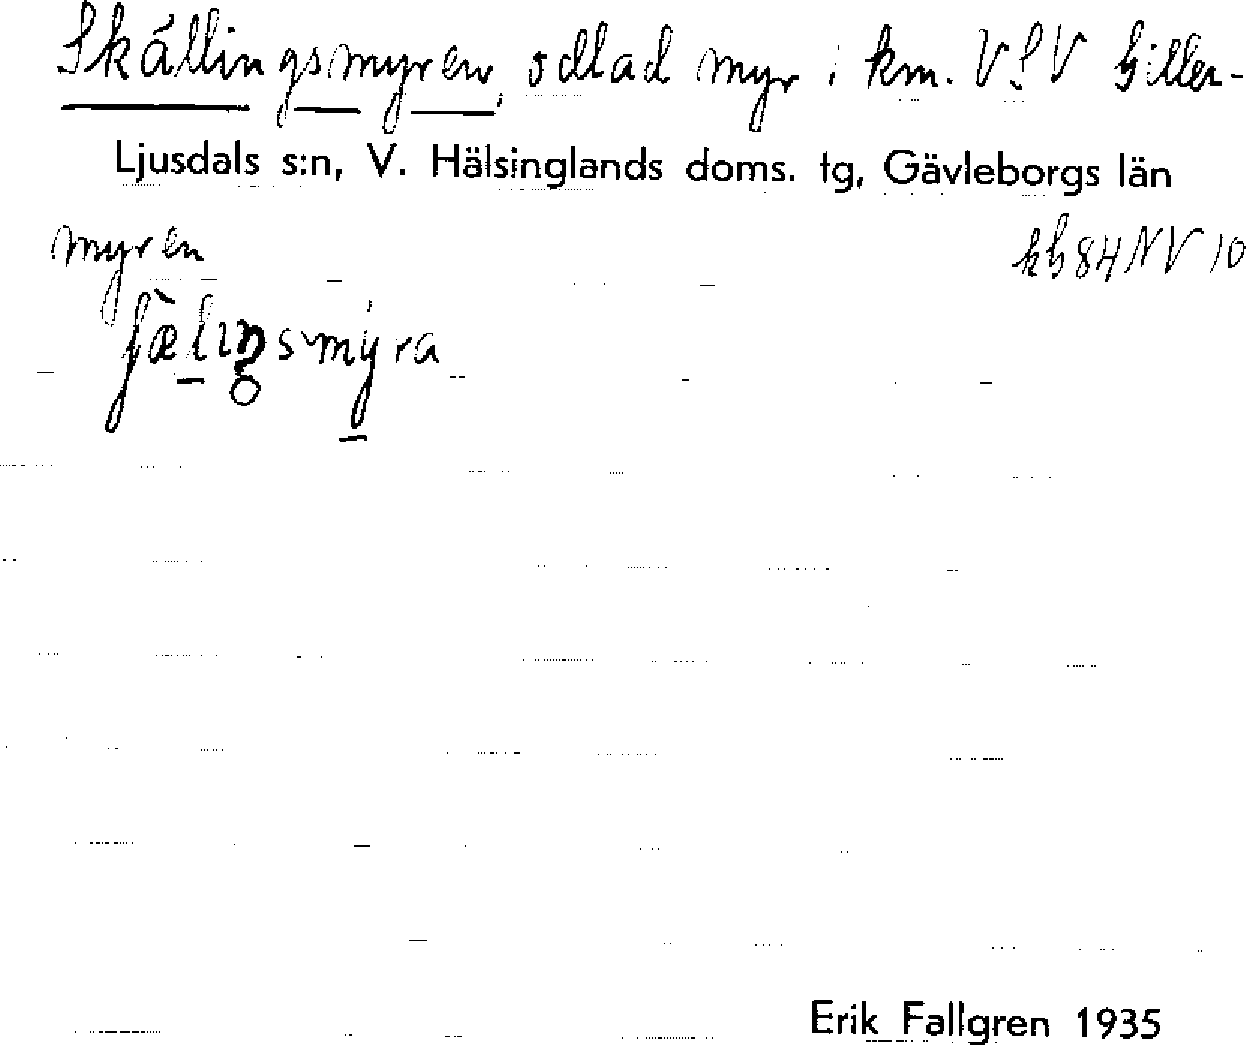 Skällingsmyren, odlad myr i km. VSV Giller-
Ljusdals s:n, V. Hälsinglands doms. tg, Gävleborgs län
myren
kb 84 NV 10
Erik Fallgren 1935